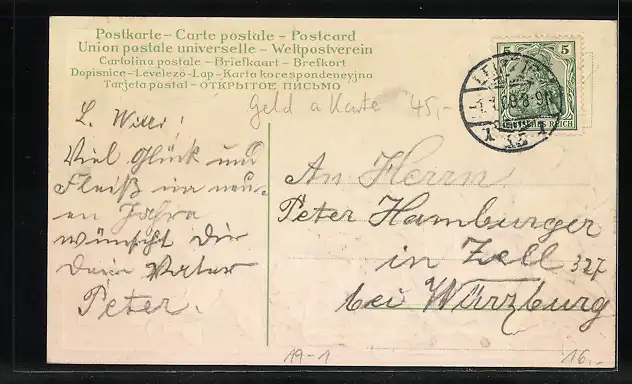 Postkarte – Carte postale – Postcard
Union postale universelle – Weltpostverein
Cartolina postale – Briefkaart – Brefkort
Dopisnice – Levelező-Lap – Karta korespondencyjna
Tarjeta postal – ОТКРЫТОЕ ПИСЬМО
Geld a Karte 45,-
5 5
DEUTSCHES REICH
L. Willi!
Viel Glück und
Fleiß im neu-
en Jahra
wünscht Dir
Dein Vater
Peter.
An Herrn
Peter Hamburger
in Zell 327
bei Würzburg
A9-1
16,-